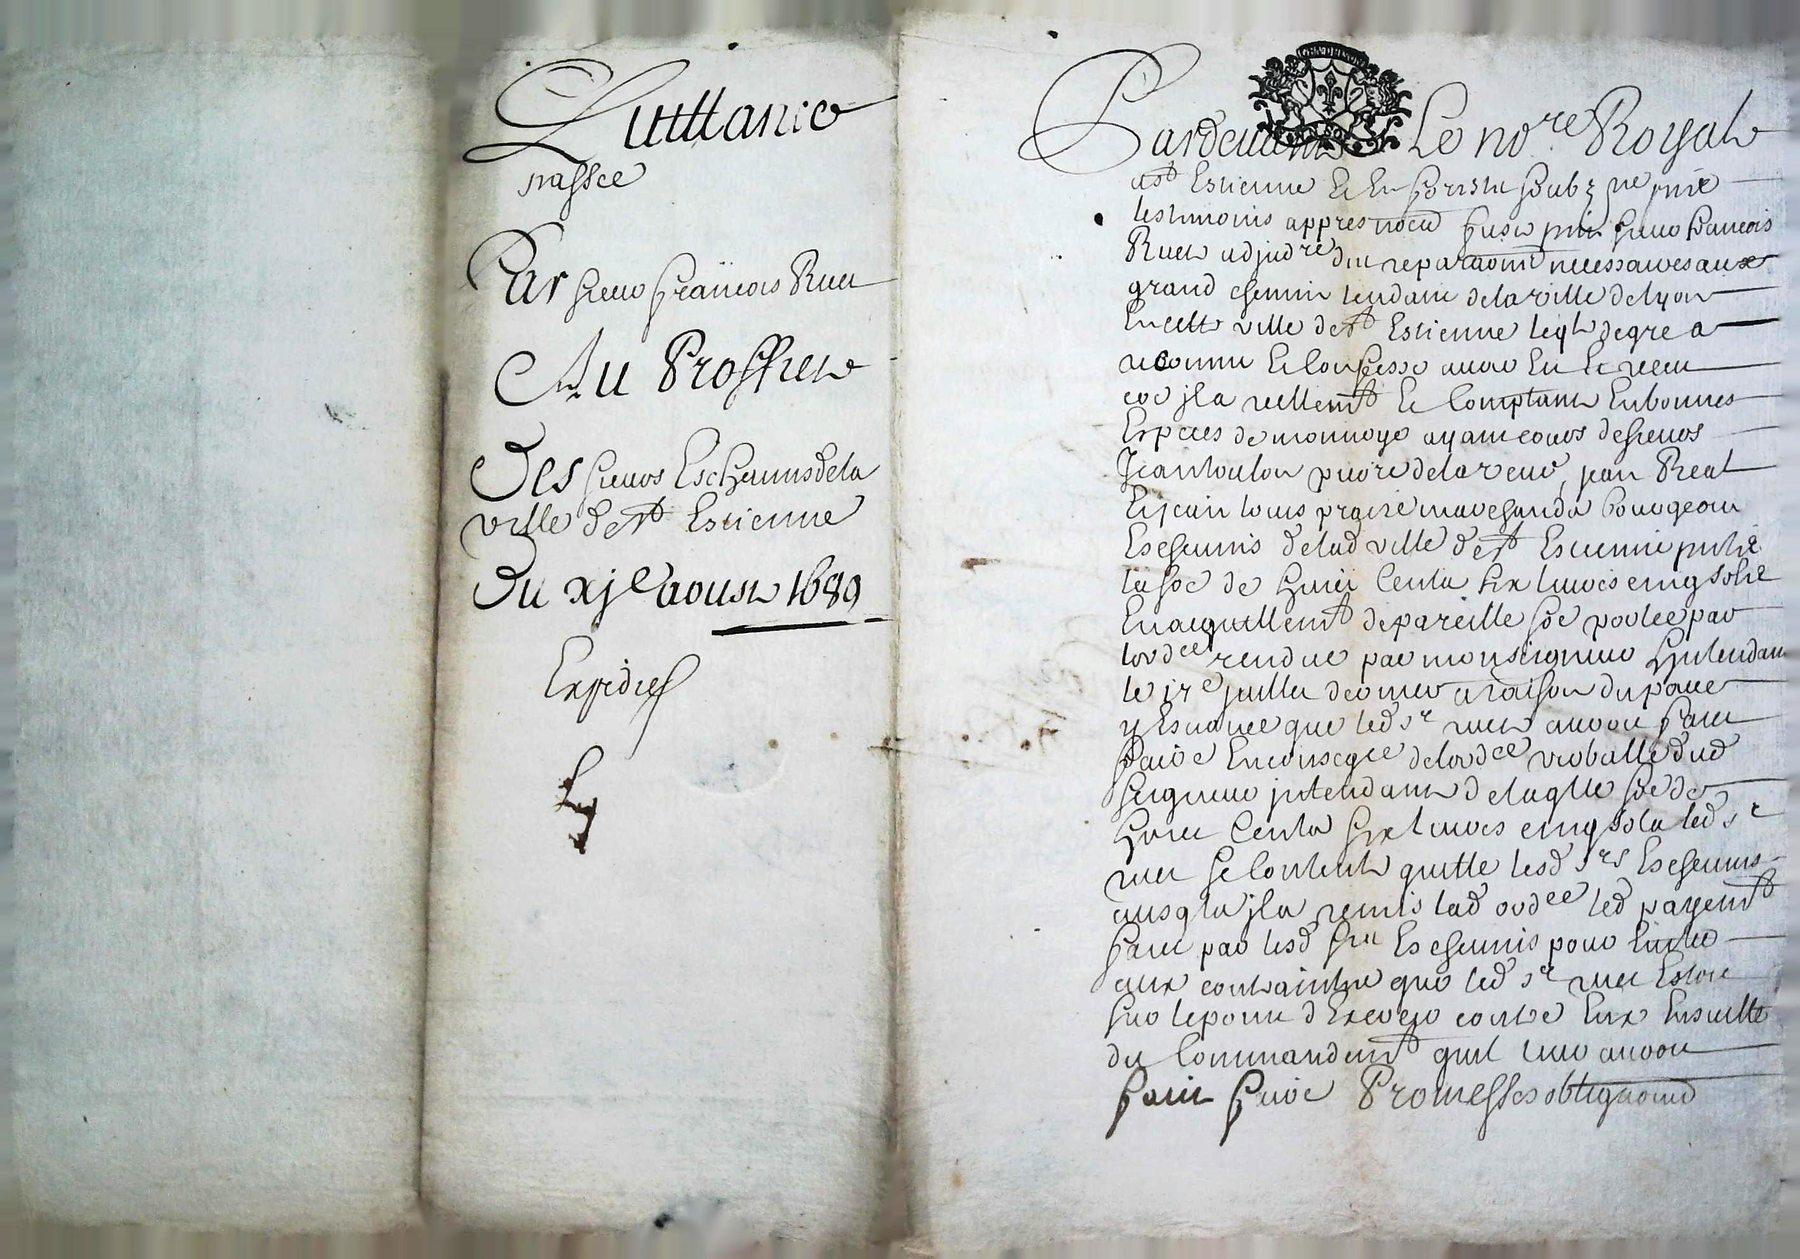 Quittance
passée
Par sieur françois Ruet
Au Proffict
Des sieurs Eschevins de la
ville de st Estienne
Du xje aoust 1689
Expedié
GEN DE LYON
Pardevant Le nore Royal
a st Estienne Et En
tesmoins appres només sieur françois
Ruet adjudre des reparaõns necessaires aux
grand chemin tendant de la ville de Lyon
En cette ville de st Estienne leql de gre a
reconnu Et Confesse avoir Eu Et receu
coe jl a reellemt Et Comptant En bonnes
Especes de monnoye ayant cours de sieurs
Jean Real
Et jean louis marchands bourgeois
Eschevins de lad ville de st Estienne
la soe de Cents six livres cinq solz
En acquittemt de pareille soe portée par
lordce rendue par monseigneur Lintendant
le 17e juillet dernier a raison du pavé
que led sr ruet auroit faict
faire En conseqce de lordce verballe dud
seigneur jntendant De laqlle soe de
Cents six livres cinq solz led sr
ruet se Contente quitte lesd srs Eschevins
ausqls jl a remis lad ordce led payemt
faict par lesd srs Eschevins pour Eviter
aux contraintes que led sr ruet Estoit
sur le point d Exercer contre Eux Ensuitte
du Commandemt quil leur auroit
faict faire Promesses obligaõns